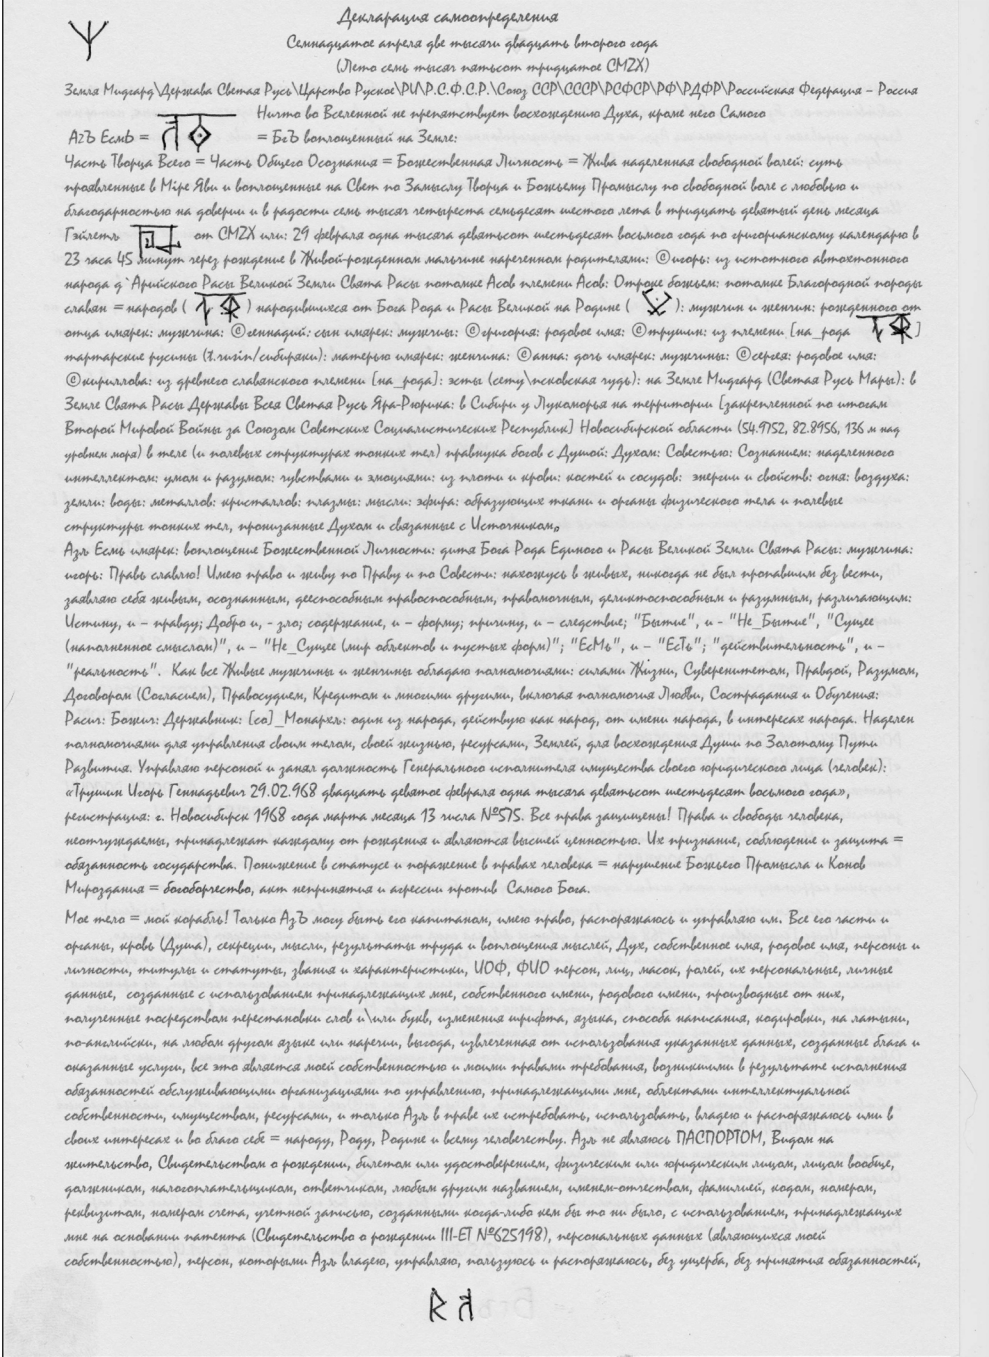 Декларация самоопределения
Семнадцатое апреля две тысячи двадцать второго года
(Лето семь тысяч пятьсот тридцатое СМZХ)
Земля Мидгард\Держава Светая Русь\Царство Руское\РИ\Р.С.Ф.С.Р.\Союз ССР\СССР\РСФСР\РФ\РДФР\Российская Федерация – Россия
Ничто во Вселенной не препятствует восхождению Духа, кроме него Самого
АзЪ ЕсмЬ = = БгЪ воплощенный на Земле:
Часть Творца Всего = Часть Общего Осознания = Божественная Личность = Жива наделенная свободной волей: суть
проявленные в Мiре Яви и воплощенные на Свет по Замыслу Творца и Божьему Промыслу по свободной воле с любовью и
благодарностью на доверии и в радости семь тысяч четыреста семьдесят шестого лета в тридцать девятый день месяца
Гэйлетъ от СМZХ или: 29 февраля одна тысяча девятьсот шестьдесят восьмого года по григорианскому календарю в
23 часа 45 минут через рождение в Живой-рожденном мальчике нареченном родителями: ©игорь: из истотного автохтонного
народа д`Арийского Расы Великой Земли Свята Расы потомке Асов племени Асов: Отроке божьем: потомке Благородной породы
славян = народов ( ) народившихся от Бога Рода и Расы Великой на Родине ( ): мужчин и женчин: рожденного от
отца имярек: мужчина: ©геннадий: сын имярек: мужчины: ©григория: родовое имя: ©трушин: из племени [на_рода ]
тартарские русины (t.rusin/сибиряки): матерью имярек: женчина: ©анна: дочь имярек: мужчины: ©сергея: родовое имя:
©кириллова: из древнего славянского племени [на_рода]: эсты (сету\псковская чудь): на Земле Мидгард (Светая Русь Мары): в
Земле Свята Расы Державы Всея Светая Русь Яра-Рюрика: в Сибири у Лукоморья на территории [закрепленной по итогам
Второй Мировой Войны за Союзом Советских Социалистических Республик] Новосибирской области (54.9752, 82.8956, 136 м над
уровнем моря) в теле (и полевых структурах тонких тел) правнука богов с Душой: Духом: Совестью: Сознанием: наделенного
интеллектом: умом и разумом: чувствами и эмоциями: из плоти и крови: костей и сосудов: энергии и свойств: огня: воздуха:
земли: воды: металлов: кристаллов: плазмы: мысли: эфира: образующих ткани и органы физического тела и полевые
структуры тонких тел, пронизанные Духом и связанные с Источником.
Азъ Есмь имярек: воплощение Божественной Личности: дитя Бога Рода Единого и Расы Великой Земли Свята Расы: мужчина:
игорь: Правь славлю! Имею право и живу по Праву и по Совести: нахожусь в живых, никогда не был пропавшим без вести,
заявляю себя живым, осознанным, дееспособным правоспособным, правомочным, деликтоспособным и разумным, различающим:
Истину, и – правду; Добро и, - зло; содержание, и – форму; причину, и – следствие; "Бытие", и - "Не_Бытие", "Сущее
(наполненное смыслом)", и – "Не_Сущее (мир объектов и пустых форм)"; "ЕсМь", и – "ЕсТь"; "действительность", и –
"реальность". Как все Живые мужчины и женчины обладаю полномочиями: силами Жизни, Суверенитетом, Правдой, Разумом,
Договором (Согласием), Правосудием, Кредитом и многими другими, включая полномочия Любви, Сострадания и Обучения:
Расич: Божич: Державник: [со]_Монархъ: один из народа, действую как народ, от имени народа, в интересах народа. Наделен
полномочиями для управления своим телом, своей жизнью, ресурсами, Землей, для восхождения Души по Золотому Пути
Развития. Управляю персоной и занял должность Генерального исполнителя имущества своего юридического лица (человек):
«Трушин Игорь Геннадьевич 29.02.968 двадцать девятое февраля одна тысяча девятьсот шестьдесят восьмого года»,
регистрация: г. Новосибирск 1968 года марта месяца 13 числа №575. Все права защищены! Права и свободы человека,
неотчуждаемы, принадлежат каждому от рождения и являются высшей ценностью. Их признание, соблюдение и защита =
обязанность государства. Понижение в статусе и поражение в правах человека = нарушение Божьего Промысла и Конов
Мироздания = богоборчество, акт непринятия и агрессии против Самого Бога.
Мое тело = мой корабль! Только АзЪ могу быть его капитаном, имею право, распоряжаюсь и управляю им. Все его части и
органы, кровь (Душа), секреции, мысли, результаты труда и воплощения мыслей, Дух, собственное имя, родовое имя, персоны и
личности, титулы и статуты, звания и характеристики, ИОФ, ФИО персон, лиц, масок, ролей, их персональные, личные
данные, созданные с использованием принадлежащих мне, собственного имени, родового имени, производные от них,
полученные посредством перестановки слов и\или букв, изменения шрифта, языка, способа написания, кодировки, на латыни,
по-английски, на любом другом языке или наречии, выгода, извлеченная от использования указанных данных, созданные блага и
оказанные услуги, все это является моей собственностью и моими правами требования, возникшими в результате исполнения
обязанностей обслуживающими организациями по управлению, принадлежащими мне, объектами интеллектуальной
собственности, имуществом, ресурсами, и только Азъ в праве их истребовать, использовать, владею и распоряжаюсь ими в
своих интересах и во благо себе = народу, Роду, Родине и всему человечеству. Азъ не являюсь ПАСПОРТОМ, Видом на
жительство, Свидетельством о рождении, билетом или удостоверением, физическим или юридическим лицом, лицом вообще,
должником, налогоплательщиком, ответчиком, любым другим названием, именем-отчеством, фамилией, кодом, номером,
реквизитом, номером счета, учетной записью, созданными когда-либо кем бы то ни было, с использованием, принадлежащих
мне на основании патента (Свидетельство о рождении III-ЕТ №625198), персональных данных (являющихся моей
собственностью), персон, которыми Азъ владею, управляю, пользуюсь и распоряжаюсь, без ущерба, без принятия обязанностей,